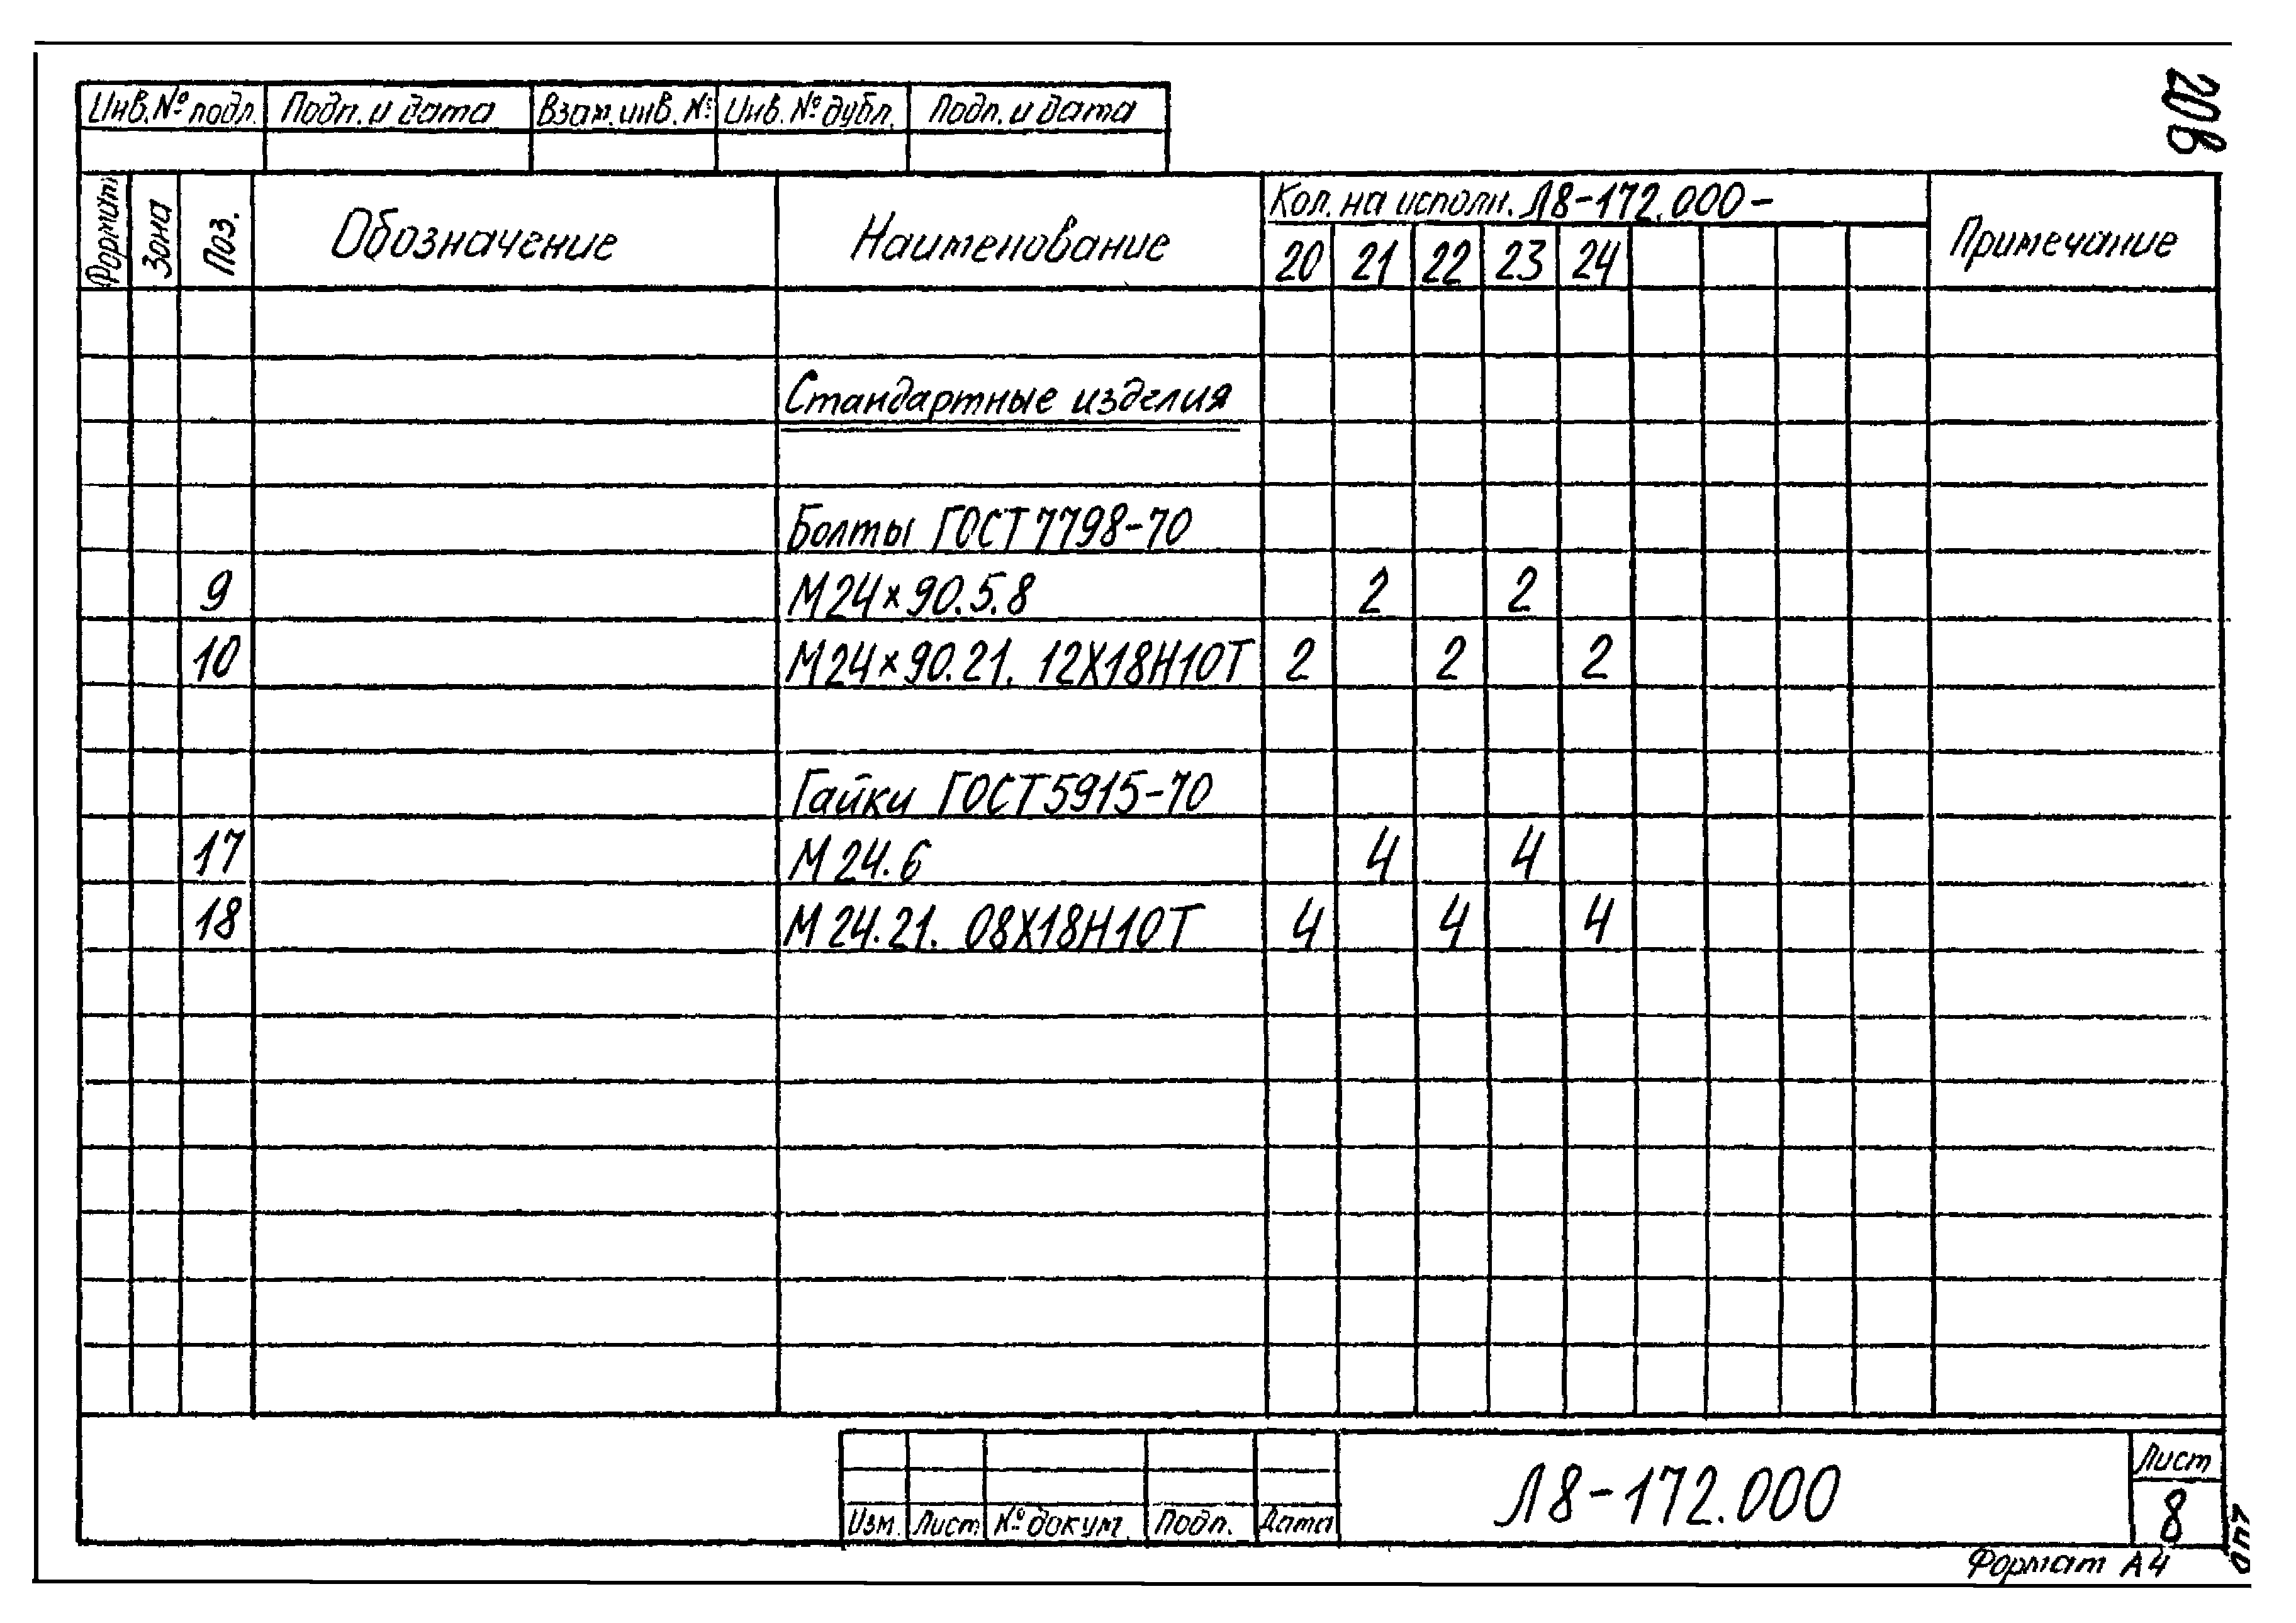 208
Инв.№ подл. Подп. и дата Взам. инв. № Инв. № дубл. Подп. и дата
Формат Зона Поз. Обозначение Наименование Кол. на исполн. Л8-172.000- Примечание
20 21 22 23 24
Стандартные изделия
Болты ГОСТ 7798-70
9 М24×90.5.8 2 2
10 М24×90.21. 12Х18Н10Т 2 2 2
Гайки ГОСТ 5915-70
17 М24.6 4 4
18 М24.21. 08Х18Н10Т 4 4 4
Изм. Лист № докум. Подп. Дата
Л8-172.000
Лист
8
Формат А4